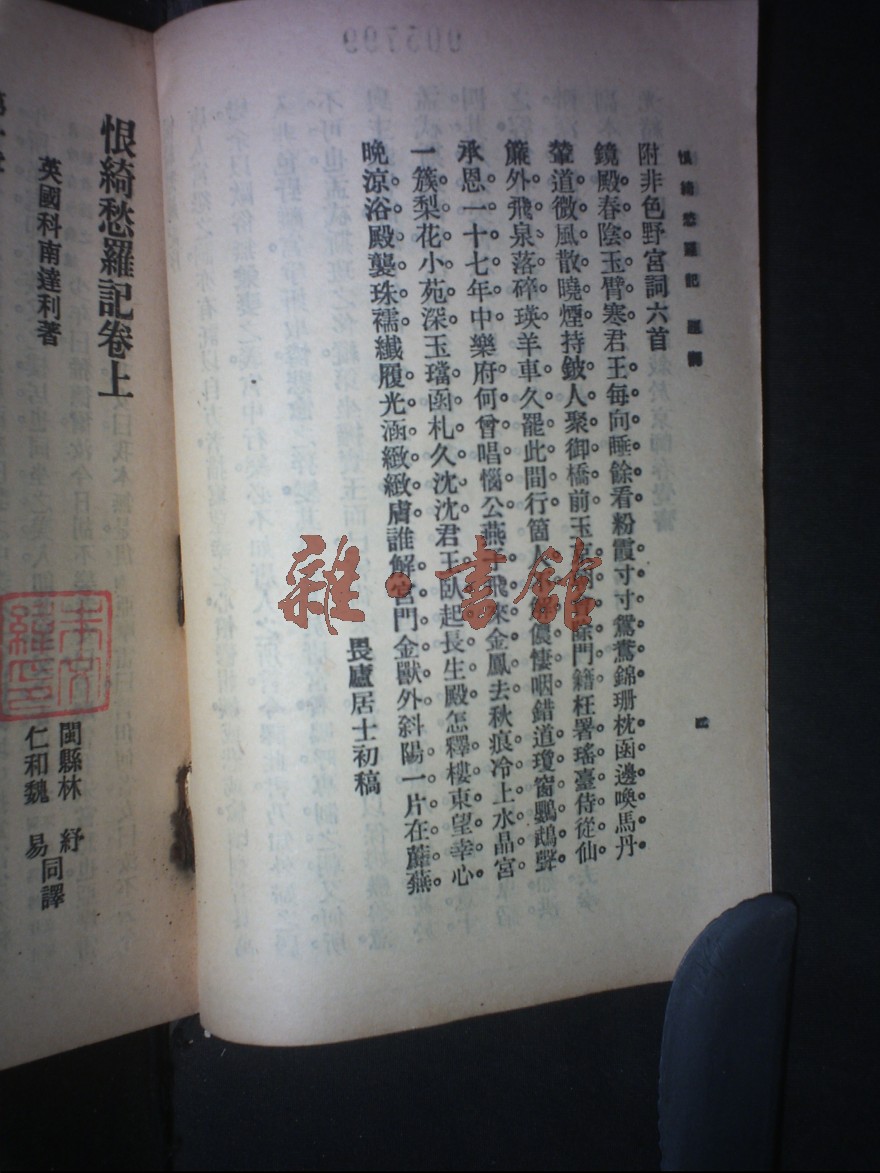 恨綺愁羅記
附非色野宮詞六首
鏡殿春陰玉臂寒君王每向睡餘看粉霞寸寸鴛鴦錦珊枕函邊喚馬丹
輦道微風散曉煙持鈹人聚御橋前玉 門籍枉署瑤臺侍從仙
簾外飛泉落碎瑛羊車久罷此間行箇人 儂悽咽錯道瓊窗鸚鵡聲
承恩一十七年中樂府何曾唱惱公燕子飛來金鳳去秋痕冷上水晶宮
一簇梨花小苑深玉璫函札久沈沈君王臥起長生殿怎釋樓東望幸心
晚涼浴殿襲珠襦纖履光涵緻緻膚誰解宮門金獸外斜陽一片在蘼蕪
畏廬居士初稿
恨綺愁羅記卷上
英國科南達利著
閩縣林 紓
仁和魏 易同譯
雜·書館
005799